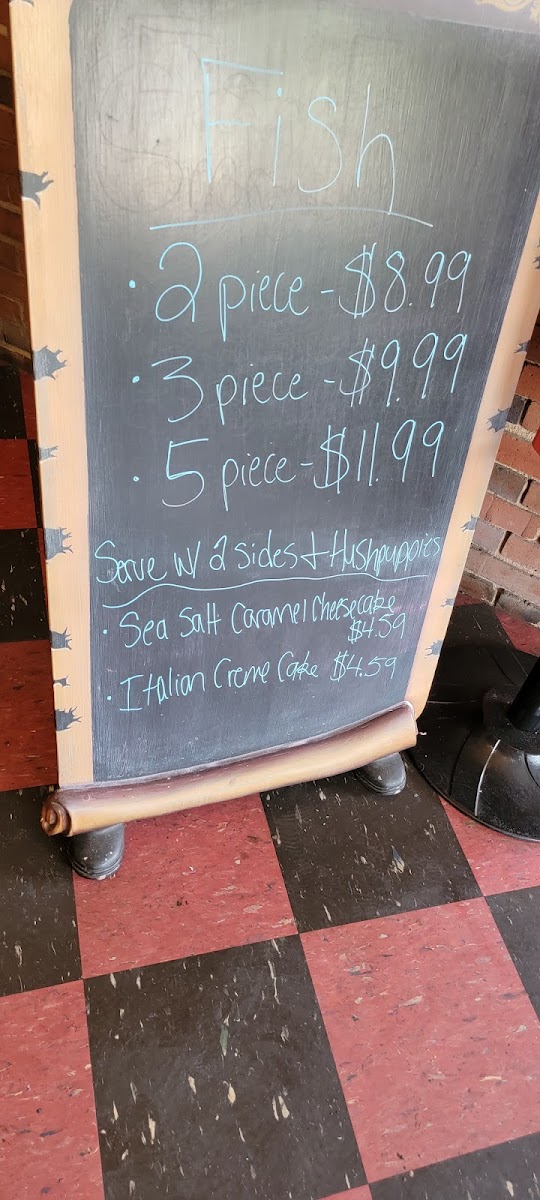 Fish
• 2 piece - $8.99
• 3 piece - $9.99
• 5 piece - $11.99
Serve W/ 2 sides + Hushpuppies
• Sea Salt Caramel Cheesecake
$4.59
• Italian Creme Cake $4.59